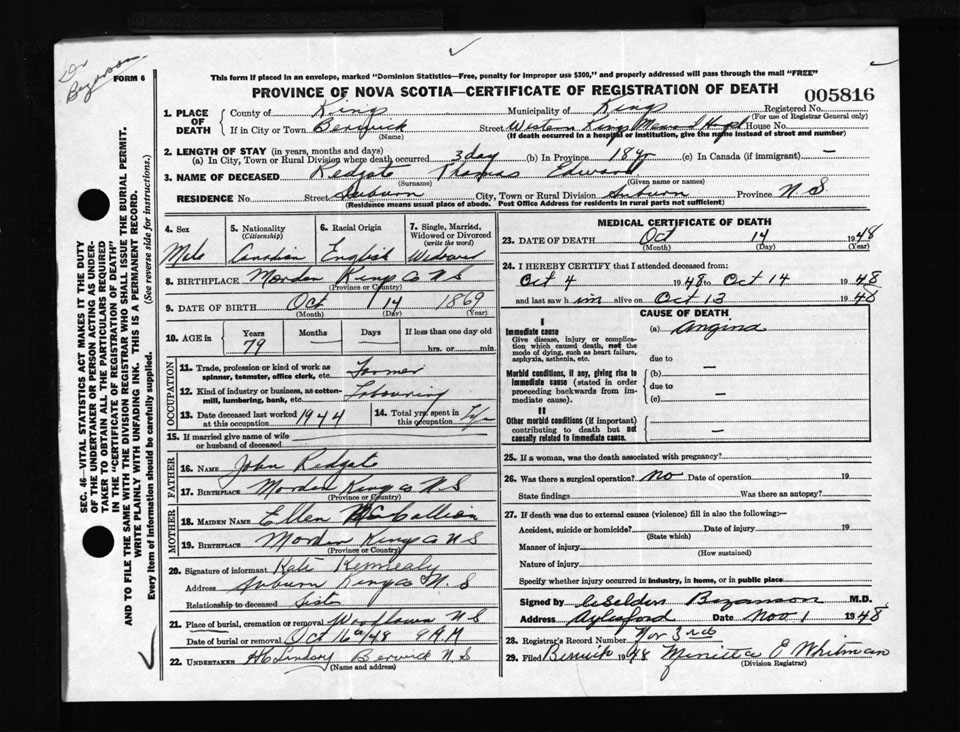 Dr Bezanson
FORM 6
This form if placed in an envelope, marked "Dominion Statistics—Free, penalty for improper use $300," and properly addressed will pass through the mail "FREE"
PROVINCE OF NOVA SCOTIA—CERTIFICATE OF REGISTRATION OF DEATH
005816
1. PLACE OF DEATH
County of Kings Municipality of Kings Registered No.
(For use of Registrar General only)
If in City or Town Berwick Street Western Kings Mem l Hospt House No.
(Name) (If death occurred in a hospital or institution, give the name instead of street and number)
2. LENGTH OF STAY (in years, months and days)
(a) In City, Town or Rural Division where death occurred 3 day (b) In Province 78 yr (c) In Canada (if immigrant) —
3. NAME OF DECEASED Redgate Thomas Edward
(Surname) (Given name or names)
RESIDENCE No. Street Auburn City, Town or Rural Division Auburn Province N. S.
(Residence means usual place of abode. Post Office Address for residents in rural parts not sufficient)
4. Sex 5. Nationality (Citizenship) 6. Racial Origin 7. Single, Married, Widowed or Divorced (write the word)
Male Canadian English Widower
8. BIRTHPLACE Morden Kings Co N S
(Province or Country)
9. DATE OF BIRTH Oct 14 1869
(Month) (Day) (Year)
10. AGE in Years Months Days If less than one day old
79 hrs. or min.
OCCUPATION
11. Trade, profession or kind of work as spinner, teamster, office clerk, etc. Farmer
12. Kind of industry or business, as cotton-mill, lumbering, bank, etc. Labouring
13. Date deceased last worked at this occupation 1944 14. Total yrs. spent in this occupation Life
15. If married give name of wife or husband of deceased
FATHER
16. Name John Redgate
17. BIRTHPLACE Morden Kings Co N S
(Province or Country)
MOTHER
18. MAIDEN NAME Ellen McCallion
19. BIRTHPLACE Morden Kings Co N S
(Province or Country)
20. Signature of informant Kate Kennealy
Address Auburn Kings Co N. S
Relationship to deceased Sister
21. Place of burial, cremation or removal Woodlawn N S
Date of burial or removal Oct 16th/48 9 A M
22. UNDERTAKER H C Lindsay Berwick N S
(Name and address)
MEDICAL CERTIFICATE OF DEATH
23. DATE OF DEATH Oct 14 1948
(Month) (Day) (Year)
24. I HEREBY CERTIFY that I attended deceased from:
Oct 4 1948 to Oct 14 1948
and last saw him alive on Oct 13 1948
CAUSE OF DEATH
I
Immediate cause (a) Angina
Give disease, injury or complication which caused death, not the mode of dying, such as heart failure, asphyxia, asthenia, etc.
due to
Morbid conditions, if any, giving rise to immediate cause (stated in order proceeding backwards from immediate cause).
(b) —
due to
(c) —
II
Other morbid conditions (if important) contributing to death but not causally related to immediate cause.
—
25. If a woman, was the death associated with pregnancy?
26. Was there a surgical operation? No Date of operation 19
State findings Was there an autopsy?
27. If death was due to external causes (violence) fill in also the following:—
Accident, suicide or homicide? Date of injury 19
(State which)
Manner of injury
(How sustained)
Nature of injury
Specify whether injury occurred in industry, in home, or in public place
Signed by Bezanson M.D.
Address Aylesford Date Nov 1 1948
28. Registrar's Record Number Nov 3rd
29. Filed Berwick 1948 Minetta E Whitman
(Division Registrar)
SEC. 46—VITAL STATISTICS ACT MAKES IT THE DUTY
OF THE UNDERTAKER OR PERSON ACTING AS UNDER-
TAKER TO OBTAIN ALL THE PARTICULARS REQUIRED
IN THE "CERTIFICATE OF REGISTRATION OF DEATH"
AND TO FILE THE SAME WITH THE DIVISION REGISTRAR WHO SHALL ISSUE THE BURIAL PERMIT.
WRITE PLAINLY WITH UNFADING INK. THIS IS A PERMANENT RECORD.
Every item of information should be carefully supplied. (See reverse side for instructions.)